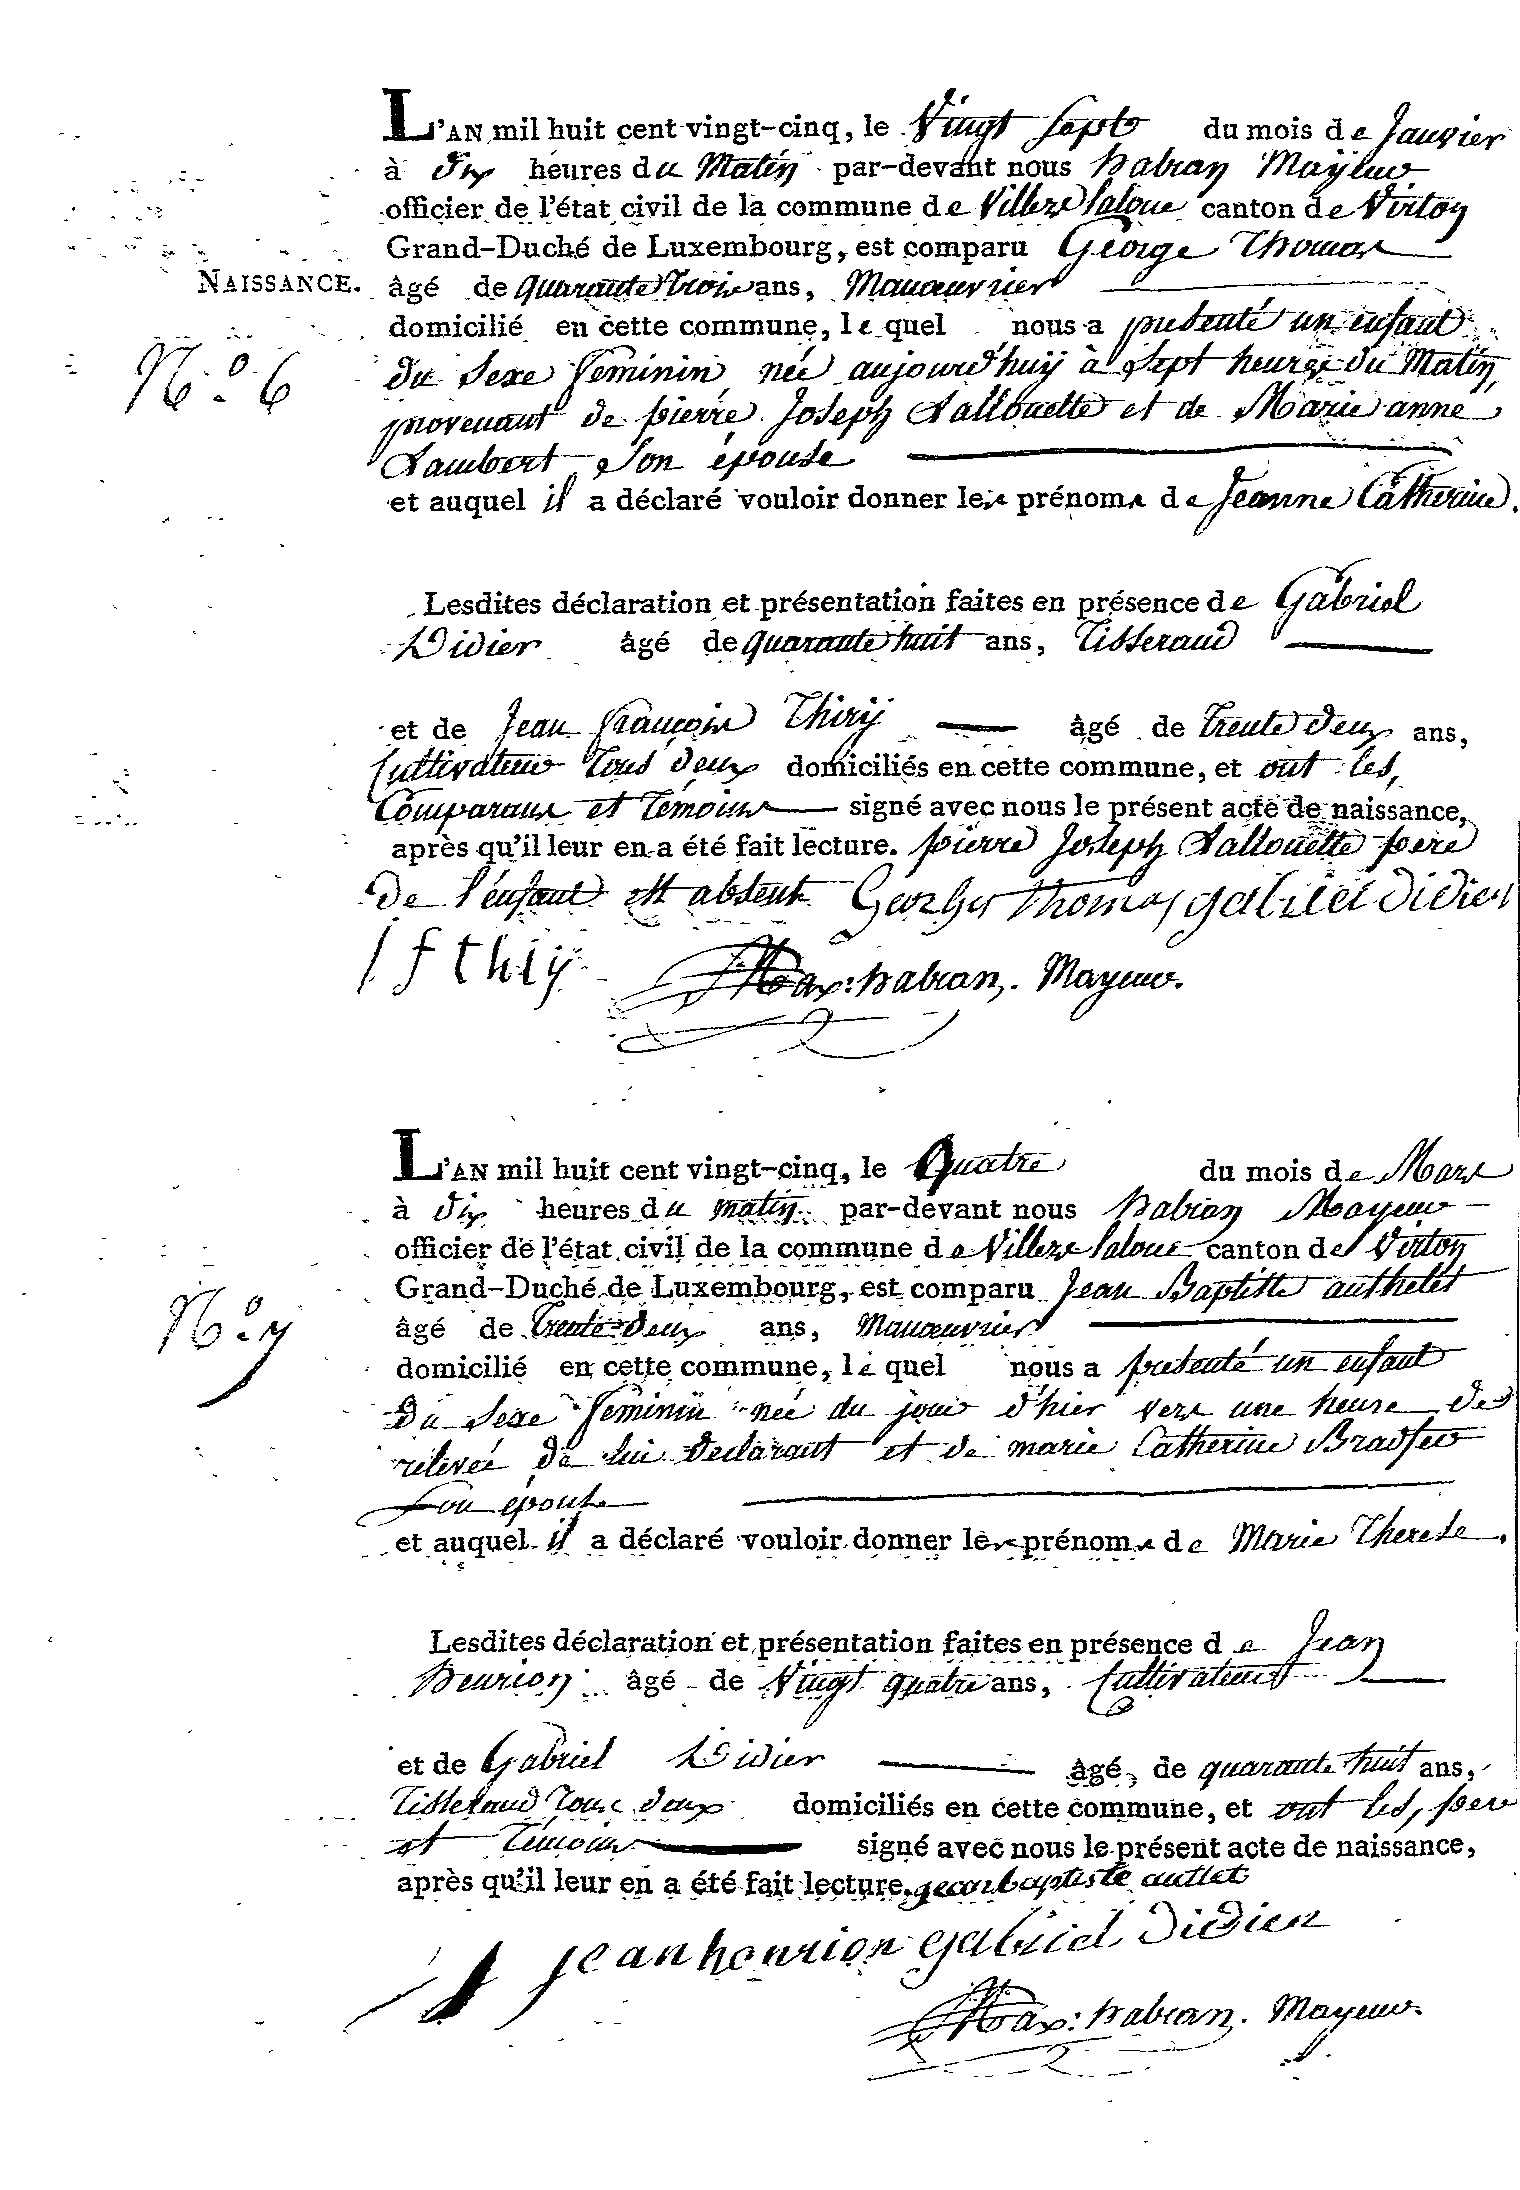 L'AN mil huit cent vingt-cinq, le Vingt Sept du mois de Janvier
à dix heures du Matin par-devant nous habran Mayeur
officier de l'état civil de la commune de Villers la loue canton de Virton
Grand-Duché de Luxembourg, est comparu George Thomas
NAISSANCE. âgé de quarante trois ans, Manœuvrier
domicilié en cette commune, le quel nous a présenté un enfant
N.o 6 du Sexe feminin née aujourd'huy à Sept heures du Matin,
provenant de pierre Joseph Lallouette et de Marie anne
Lambert Son épouse
et auquel il a déclaré vouloir donner les prénoms de Jeanne Catherine.
Lesdites déclaration et présentation faites en présence de Gabriel
Didier âgé de quarante huit ans, Tisserand
et de Jean françois Thiry âgé de Trente deux ans,
Cultivateur Tous deux domiciliés en cette commune, et ont les,
Comparans et Témoins signé avec nous le présent acte de naissance,
après qu'il leur en a été fait lecture. pierre Joseph Lallouette père
de l'enfant est absent Thomas gabriel didier
J f thiy Max: habran, Mayeur.
L'AN mil huit cent vingt-cinq, le Quatre du mois de Mars
à dix heures du matin par-devant nous habran Mayeur
officier de l'état civil de la commune de Villers la loue canton de Virton
Grand-Duché de Luxembourg, est comparu Jean Baptiste authelet
N.o 7 âgé de Trente deux ans, Manœuvrier
domicilié en cette commune, le quel nous a présenté un enfant
du Sexe feminin née du jour d'hier vers une heure de
relevée de lui declarant et de marie Catherine Bradfer
Son épouse
et auquel il a déclaré vouloir donner les prénoms de Marie Therese.
Lesdites déclaration et présentation faites en présence de Jean
henrion âgé de Vingt quatre ans, Cultivateur
et de Gabriel Didier âgé de quarante huit ans,
Tisserand Tous deux domiciliés en cette commune, et ont les, père
et Témoins signé avec nous le présent acte de naissance,
après qu'il leur en a été fait lecture. jean baptiste autlet
Jean henrion gabriel didier
Max: habran. Mayeur.